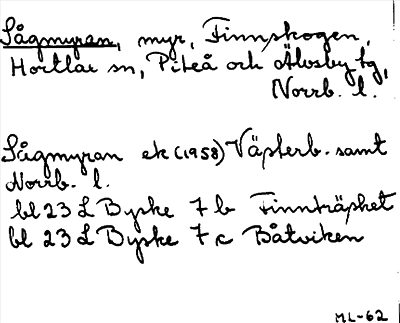 Sågmyran, myr, Finnskogen,
Hortlax sn, Piteå och Älvsby tg,
Norrb. l.
Sågmyran ek (1958) Västerb. samt
Norrb. l.
bl 23 L Byske 7 b Finnträsket
bl 23 L Byske 7 c Båtviken
ML-62